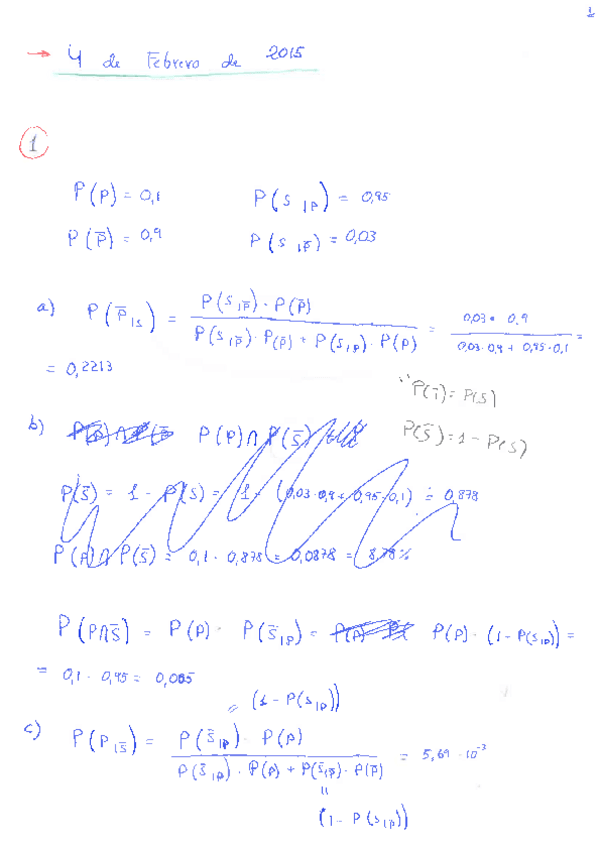 1
→ 4 de Febrero de 2015
1
P(P) = 0,1 P(S|P) = 0,95
P(P̅) = 0,9 P(S|P̅) = 0,03
a) P(P̅|S) = P(S|P̅) · P(P̅) / P(S|P̅) · P(P̅) + P(S|P) · P(P) = 0,03 · 0,9 / 0,03·0,9 + 0,95·0,1 =
= 0,2213
P(S̅) = 1 - P(S)
b) P(P) ∩ P(S̅)
P(S̅) = 1 - P(S) = 1 - (0,03·0,9 + 0,95·0,1) = 0,878
P(P) ∩ P(S̅) = 0,1 · 0,878 = 0,0878 = 8,78%
P(P∩S̅) = P(P) · P(S̅|P) = P(P) · (1 - P(S|P)) =
= 0,1 · 0,95 = 0,005
(1 - P(S|P))
c) P(P|S̅) = P(S̅|P) · P(P) / P(S̅|P) · P(P) + P(S̅|P̅) · P(P̅) = 5,69 · 10⁻³
(1 - P(S|P̅))